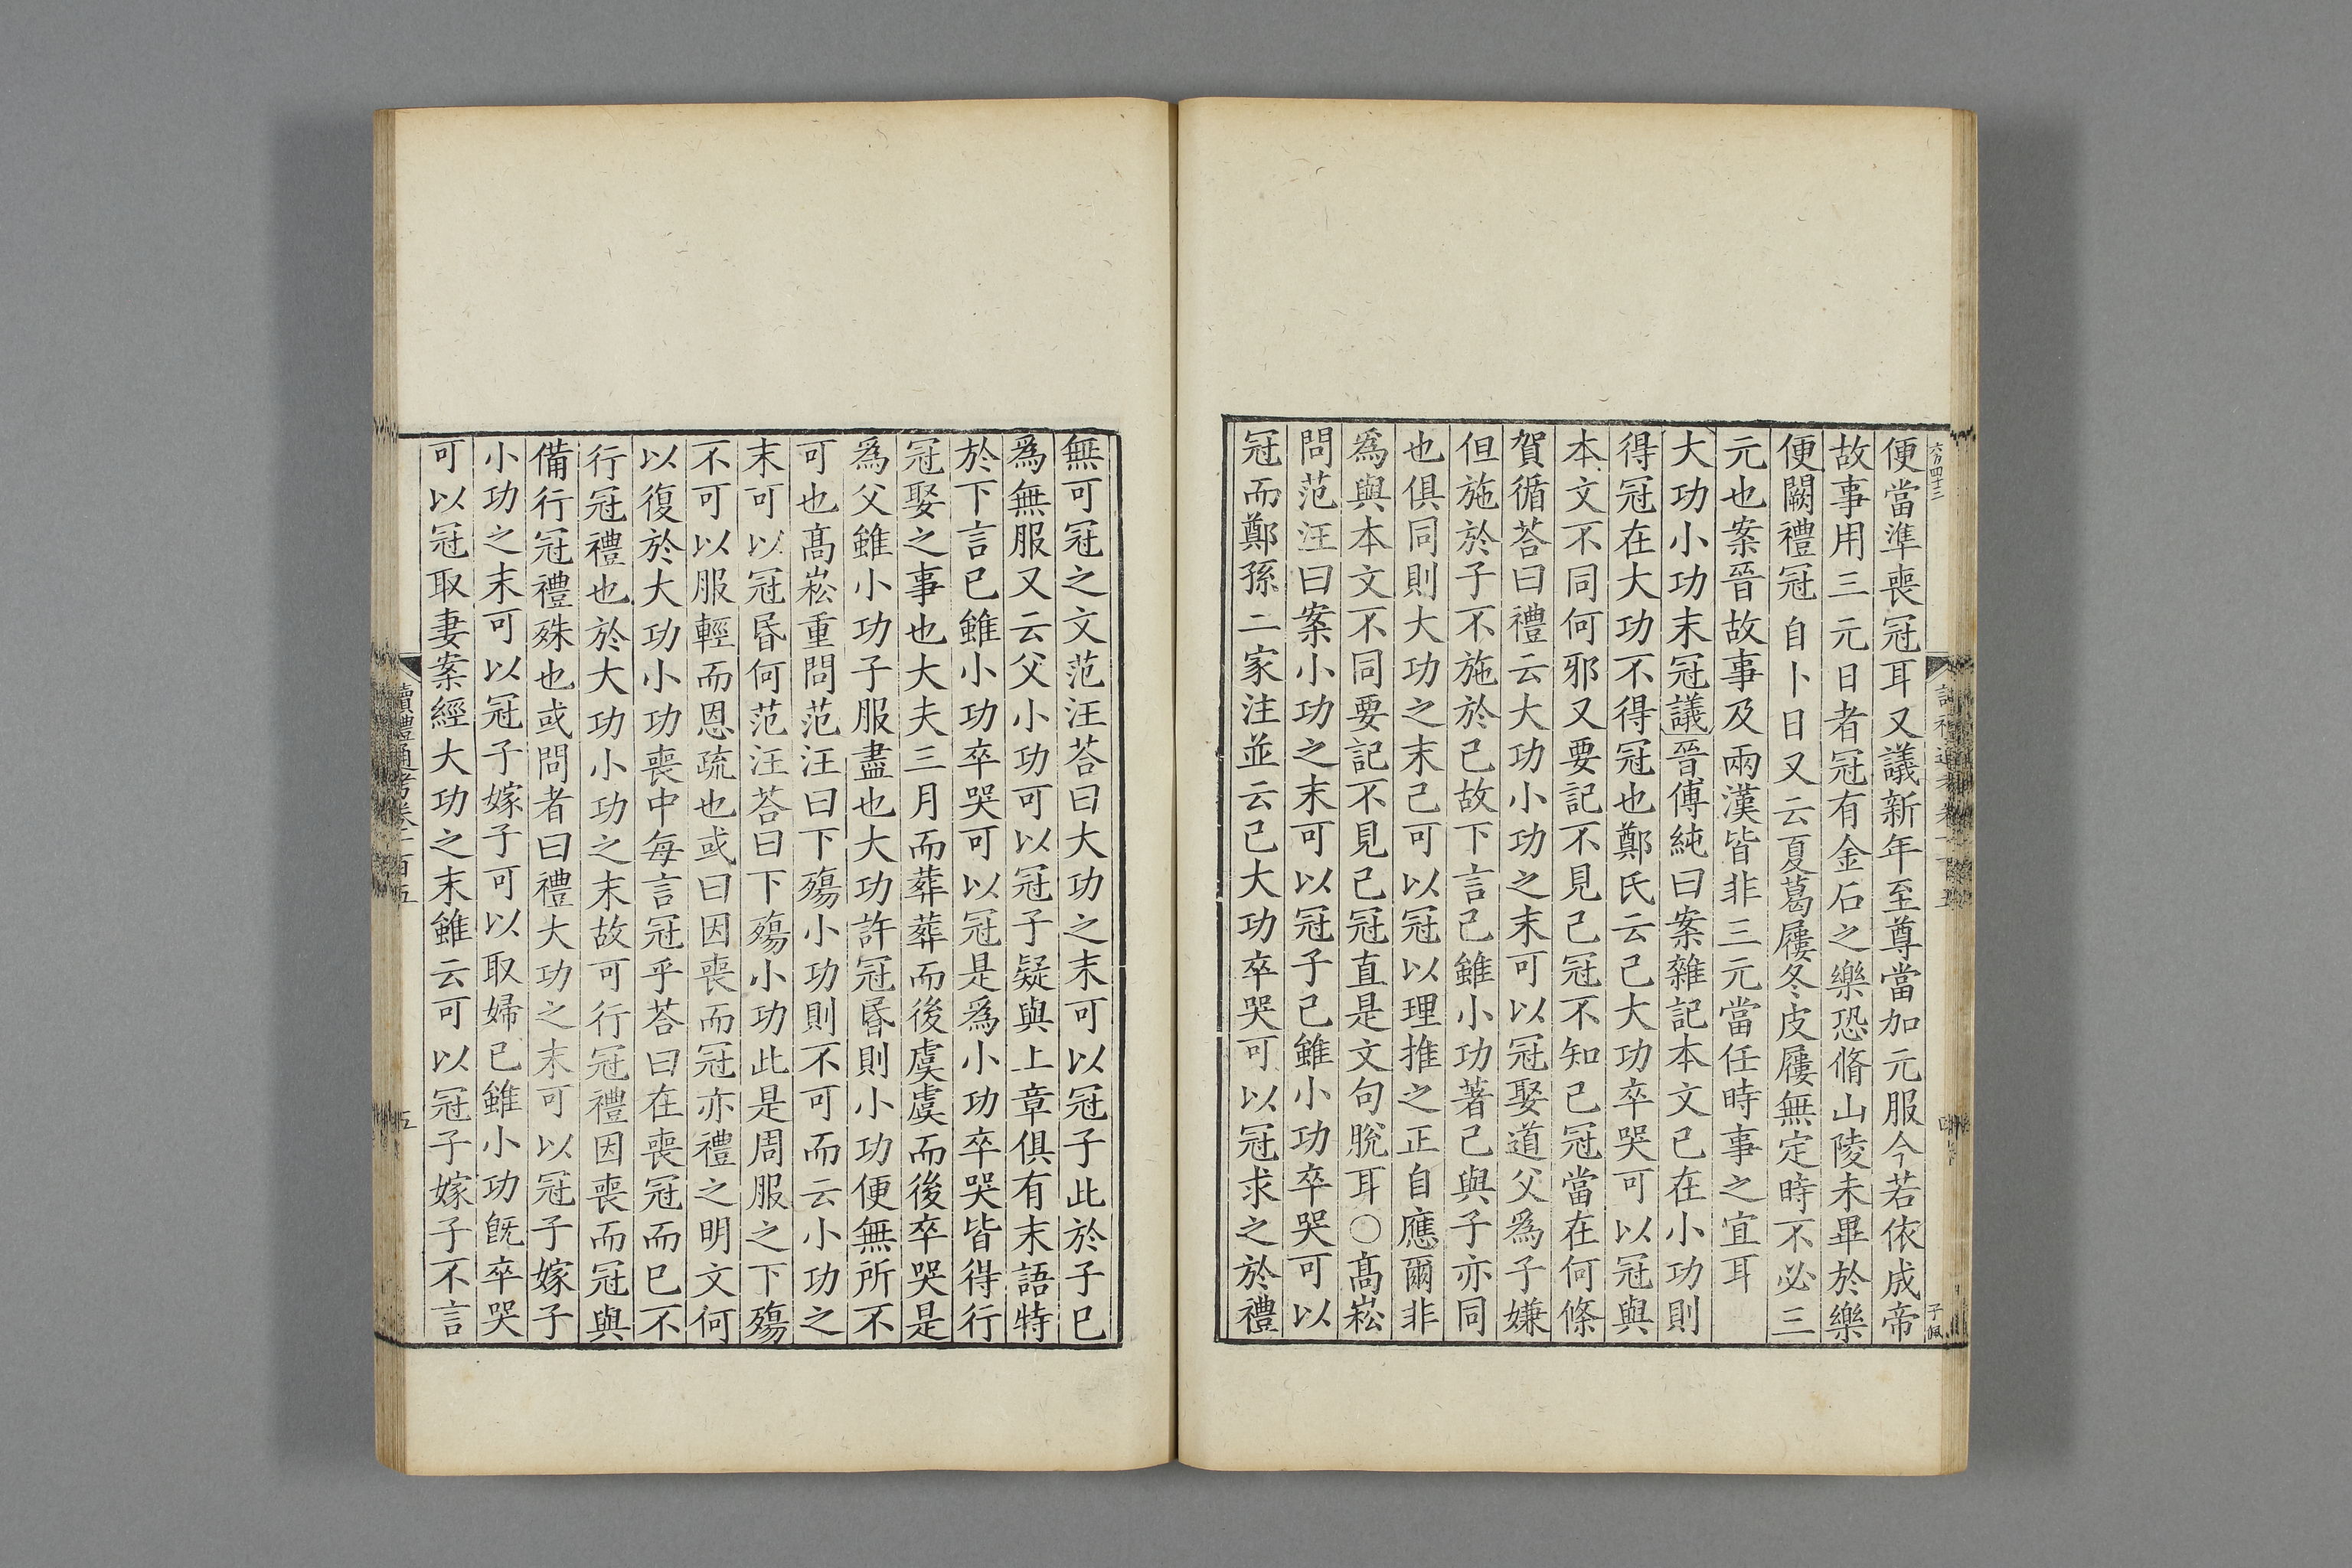 便當準喪冠耳又議新年至尊當加元服今若依成帝
故事用三元日者冠有金石之樂恐脩山陵未畢於樂
便闕禮冠自卜日又云夏葛屨冬皮屨無定時不必三
元也案晉故事及兩漢皆非三元當任時事之宜耳
大功小功末冠議晉傅純曰案雜記本文已在小功則
得冠在大功不得冠也鄭氏云己大功卒哭可以冠與
本文不同何邪又要記不見己冠不知己冠當在何條
賀循荅曰禮云大功小功之末可以冠娶道父爲子嫌
但施於子不施於己故下言己雖小功著己與子亦同
也俱同則大功之末己可以冠以理推之正自應爾非
爲與本文不同要記不見己冠直是文句脫耳〇高崧
問范汪曰案小功之末可以冠子己雖小功卒哭可以
冠而鄭孫二家注並云已大功卒哭可以冠求之於禮
無可冠之文范汪荅曰大功之末可以冠子此於子已
爲無服又云父小功可以冠子疑與上章俱有末語特
於下言已雖小功卒哭可以冠是爲小功卒哭皆得行
冠娶之事也大夫三月而葬葬而後虞虞而後卒哭是
爲父雖小功子服盡也大功許冠昏則小功便無所不
可也高崧重問范汪曰下殤小功則不可而云小功之
末可以冠昏何范汪荅曰下殤小功此是周服之下殤
不可以服輕而恩疏也或曰因喪而冠亦禮之明文何
以復於大功小功喪中每言冠乎荅曰在喪冠而已不
行冠禮也於大功小功之末故可行冠禮因喪而冠與
備行冠禮殊也或問者曰禮大功之末可以冠子嫁子
小功之末可以冠子嫁子可以取婦已雖小功旣卒哭
可以冠取妻案經大功之末雖云可以冠子嫁子不言
讀禮通考卷一百五
五